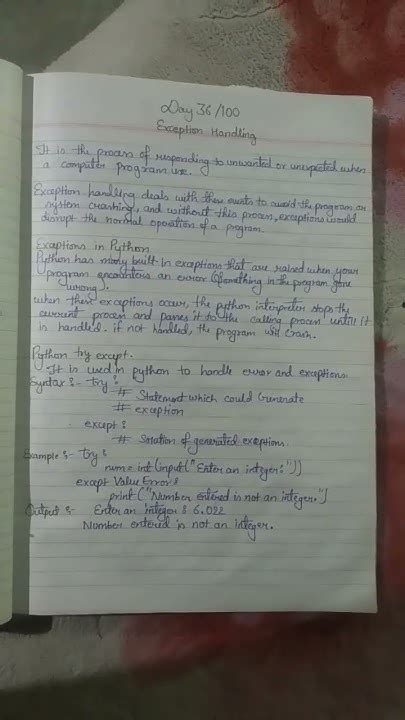 Day 36/100
Exception Handling
It is the process of responding to unwanted or unexpected when
a computer program use.
Exception handling deals with these events to avoid the program or
system crashing, and without this process, exceptions would
disrupt the normal operation of a program.
Exceptions in Python
Python has many built in exceptions that are raised when your
program encounters an error (Something in the program gone
wrong).
when these exceptions occur, the python interpreter stops the
current process and passes it to the calling process untill it
in handled. if not handled, the program will crash.
Python try except.
It is used in python to handle error and exceptions.
Syntax :- try :
# Statement which could Generate
# exception
except :
# Solution of generated exceptions.
Example :- try :
num = int (input("Enter an integer: "))
except Value Error :
print ("Number entered is not an integer.")
Output :- Enter an integer : 6.022
Number entered is not an integer.